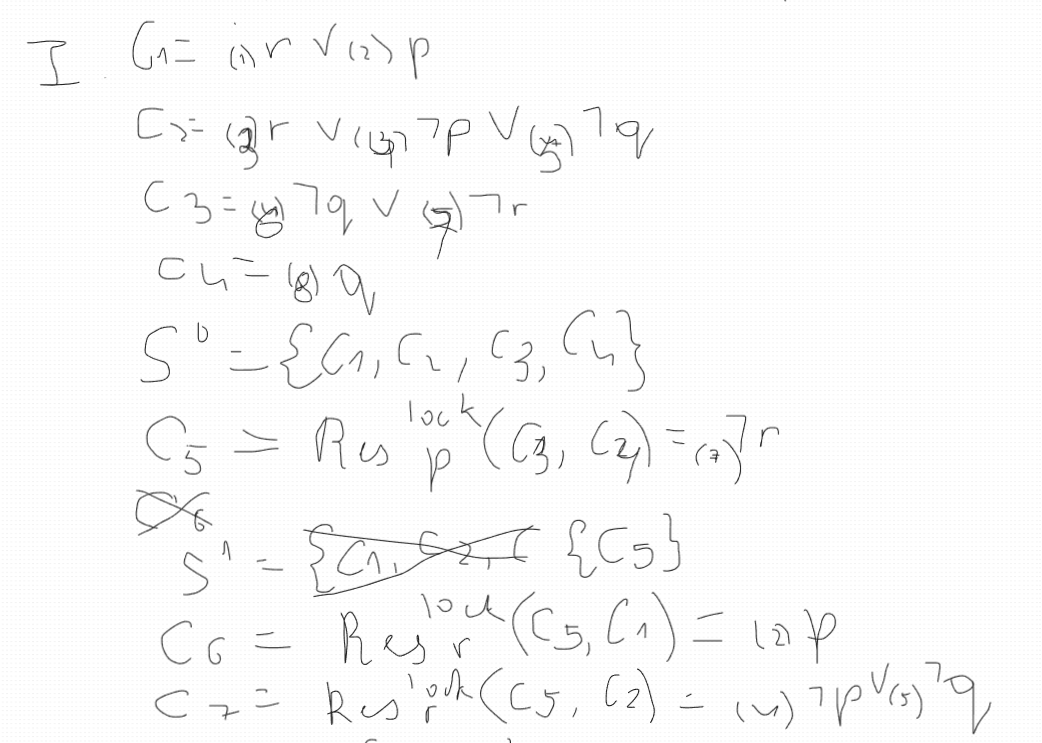 I. C1 = (1) r ∨ (2) p
C2 = (3) r ∨ (4) ¬p ∨ (5) ¬q
C3 = (6) ¬q ∨ (7) ¬r
C4 = (8) q
S⁰ = {C1, C2, C3, C4}
C5 = Res p lock (C3, C4) = (7) ¬r
C6
S¹ = {C1, C2, C {C5}
C6 = Res r lock (C5, C1) = (2) p
C7 = Res r lock (C5, C2) = (4) ¬p ∨ (5) ¬q